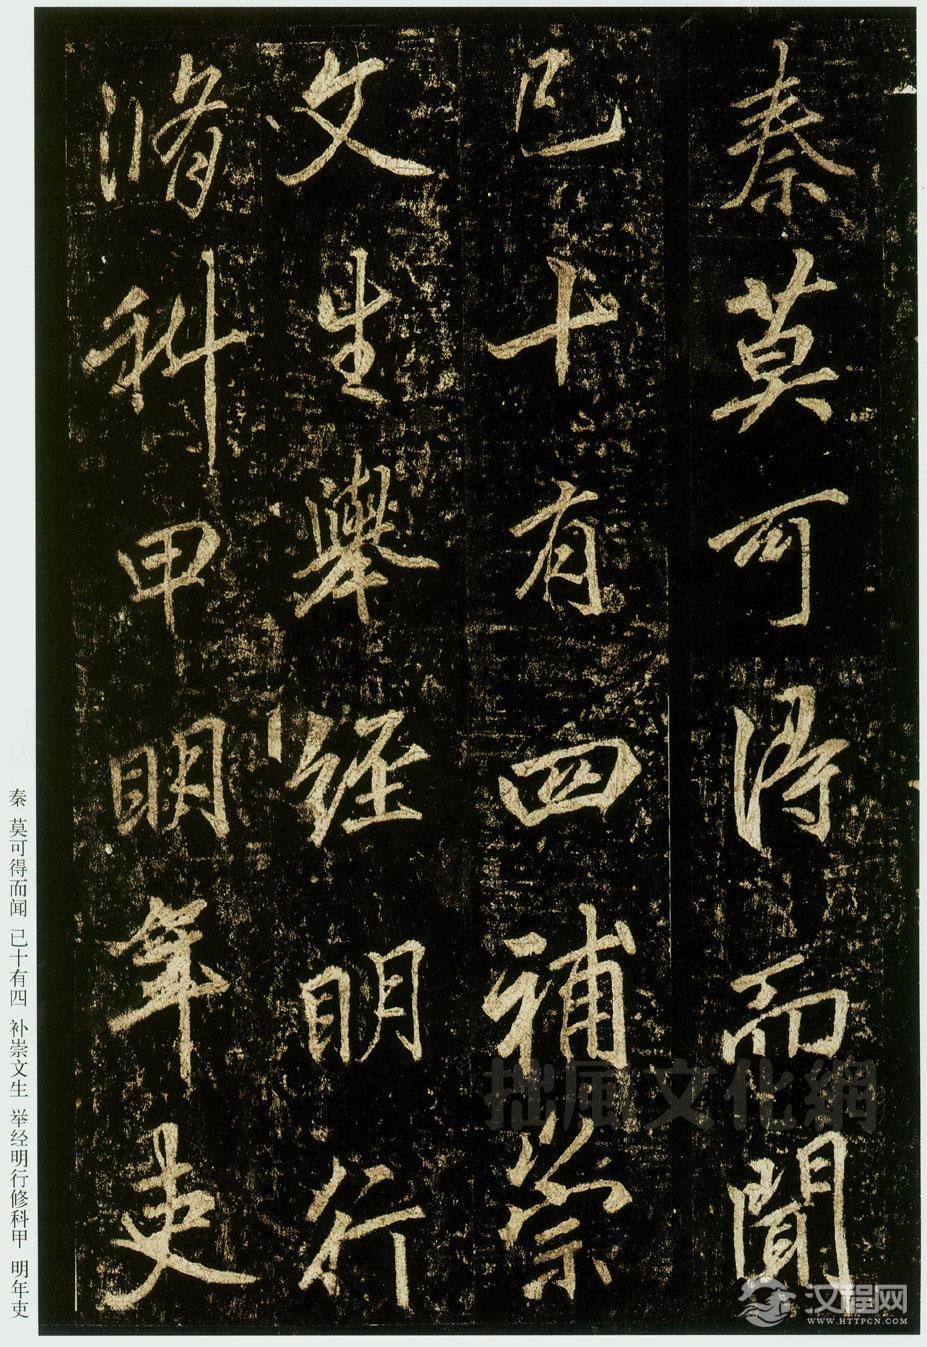 秦莫可得而聞
已十有四補崇
文生舉經明行
脩科甲明年吏
秦 莫可得而闻 已十有四 补崇文生 举经明行修科甲 明年吏
拙風文化網
汉程网
WWW.HTTPCN.COM